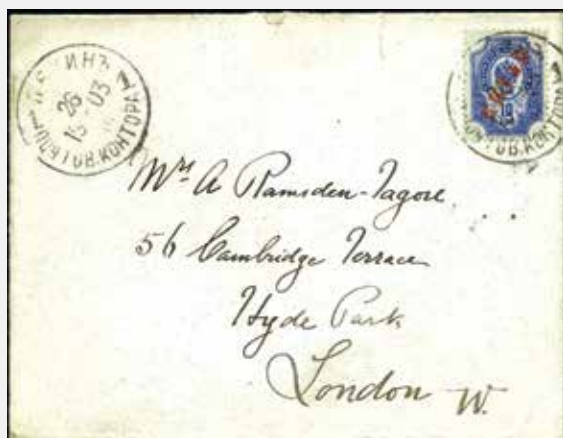 ПЕКИНЪ
26
03
ПОЧТОВ.КОНТОРА
1
КИТАЙ
10
Mrs A Ramsden-Tagore
56 Cambridge Terrace
Hyde Park
London W.